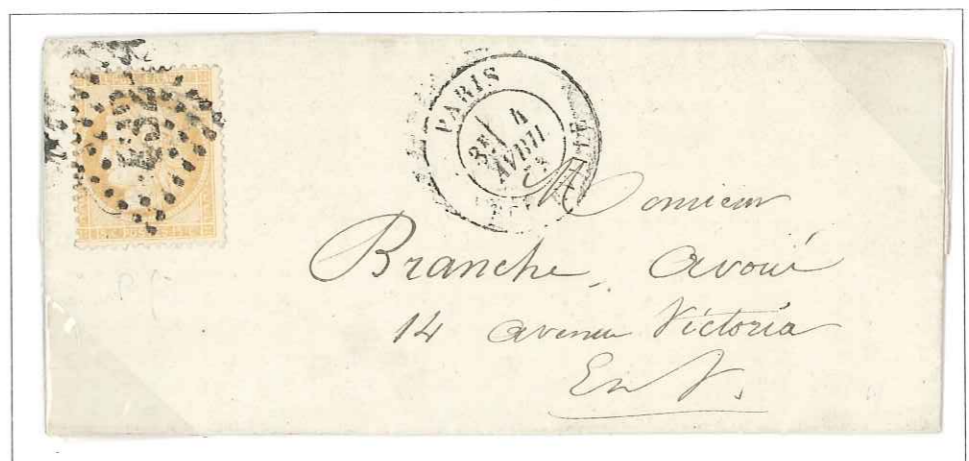 PARIS
3E
4
AVRIL
Monsieur
Branche, avoué
14 avenue Victoria
En V.